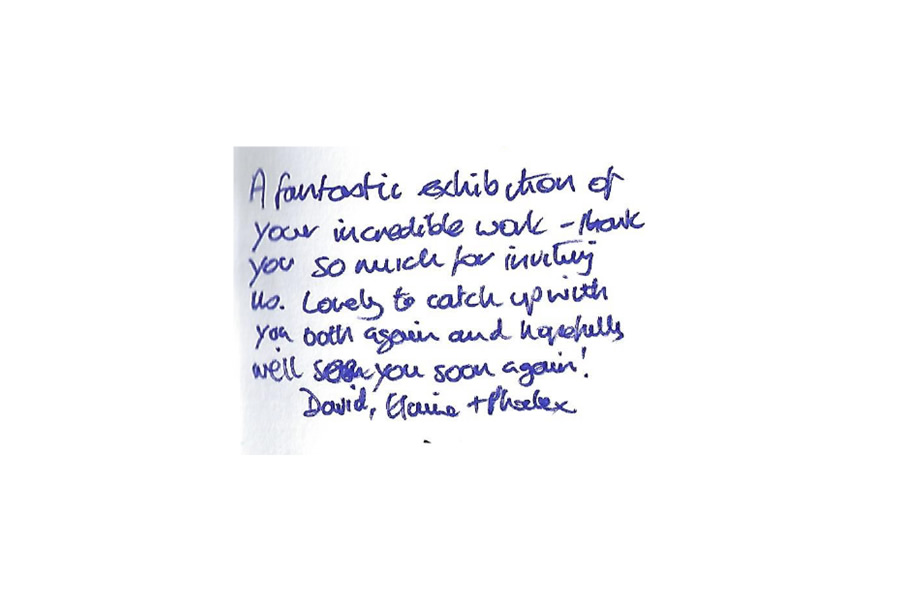 A fantastic exhibition of
your incredible work - thank
you so much for inviting
us. Lovely to catch up with
you both again and hopefully
we'll see you soon again!
David, Elaine + Phoebe x